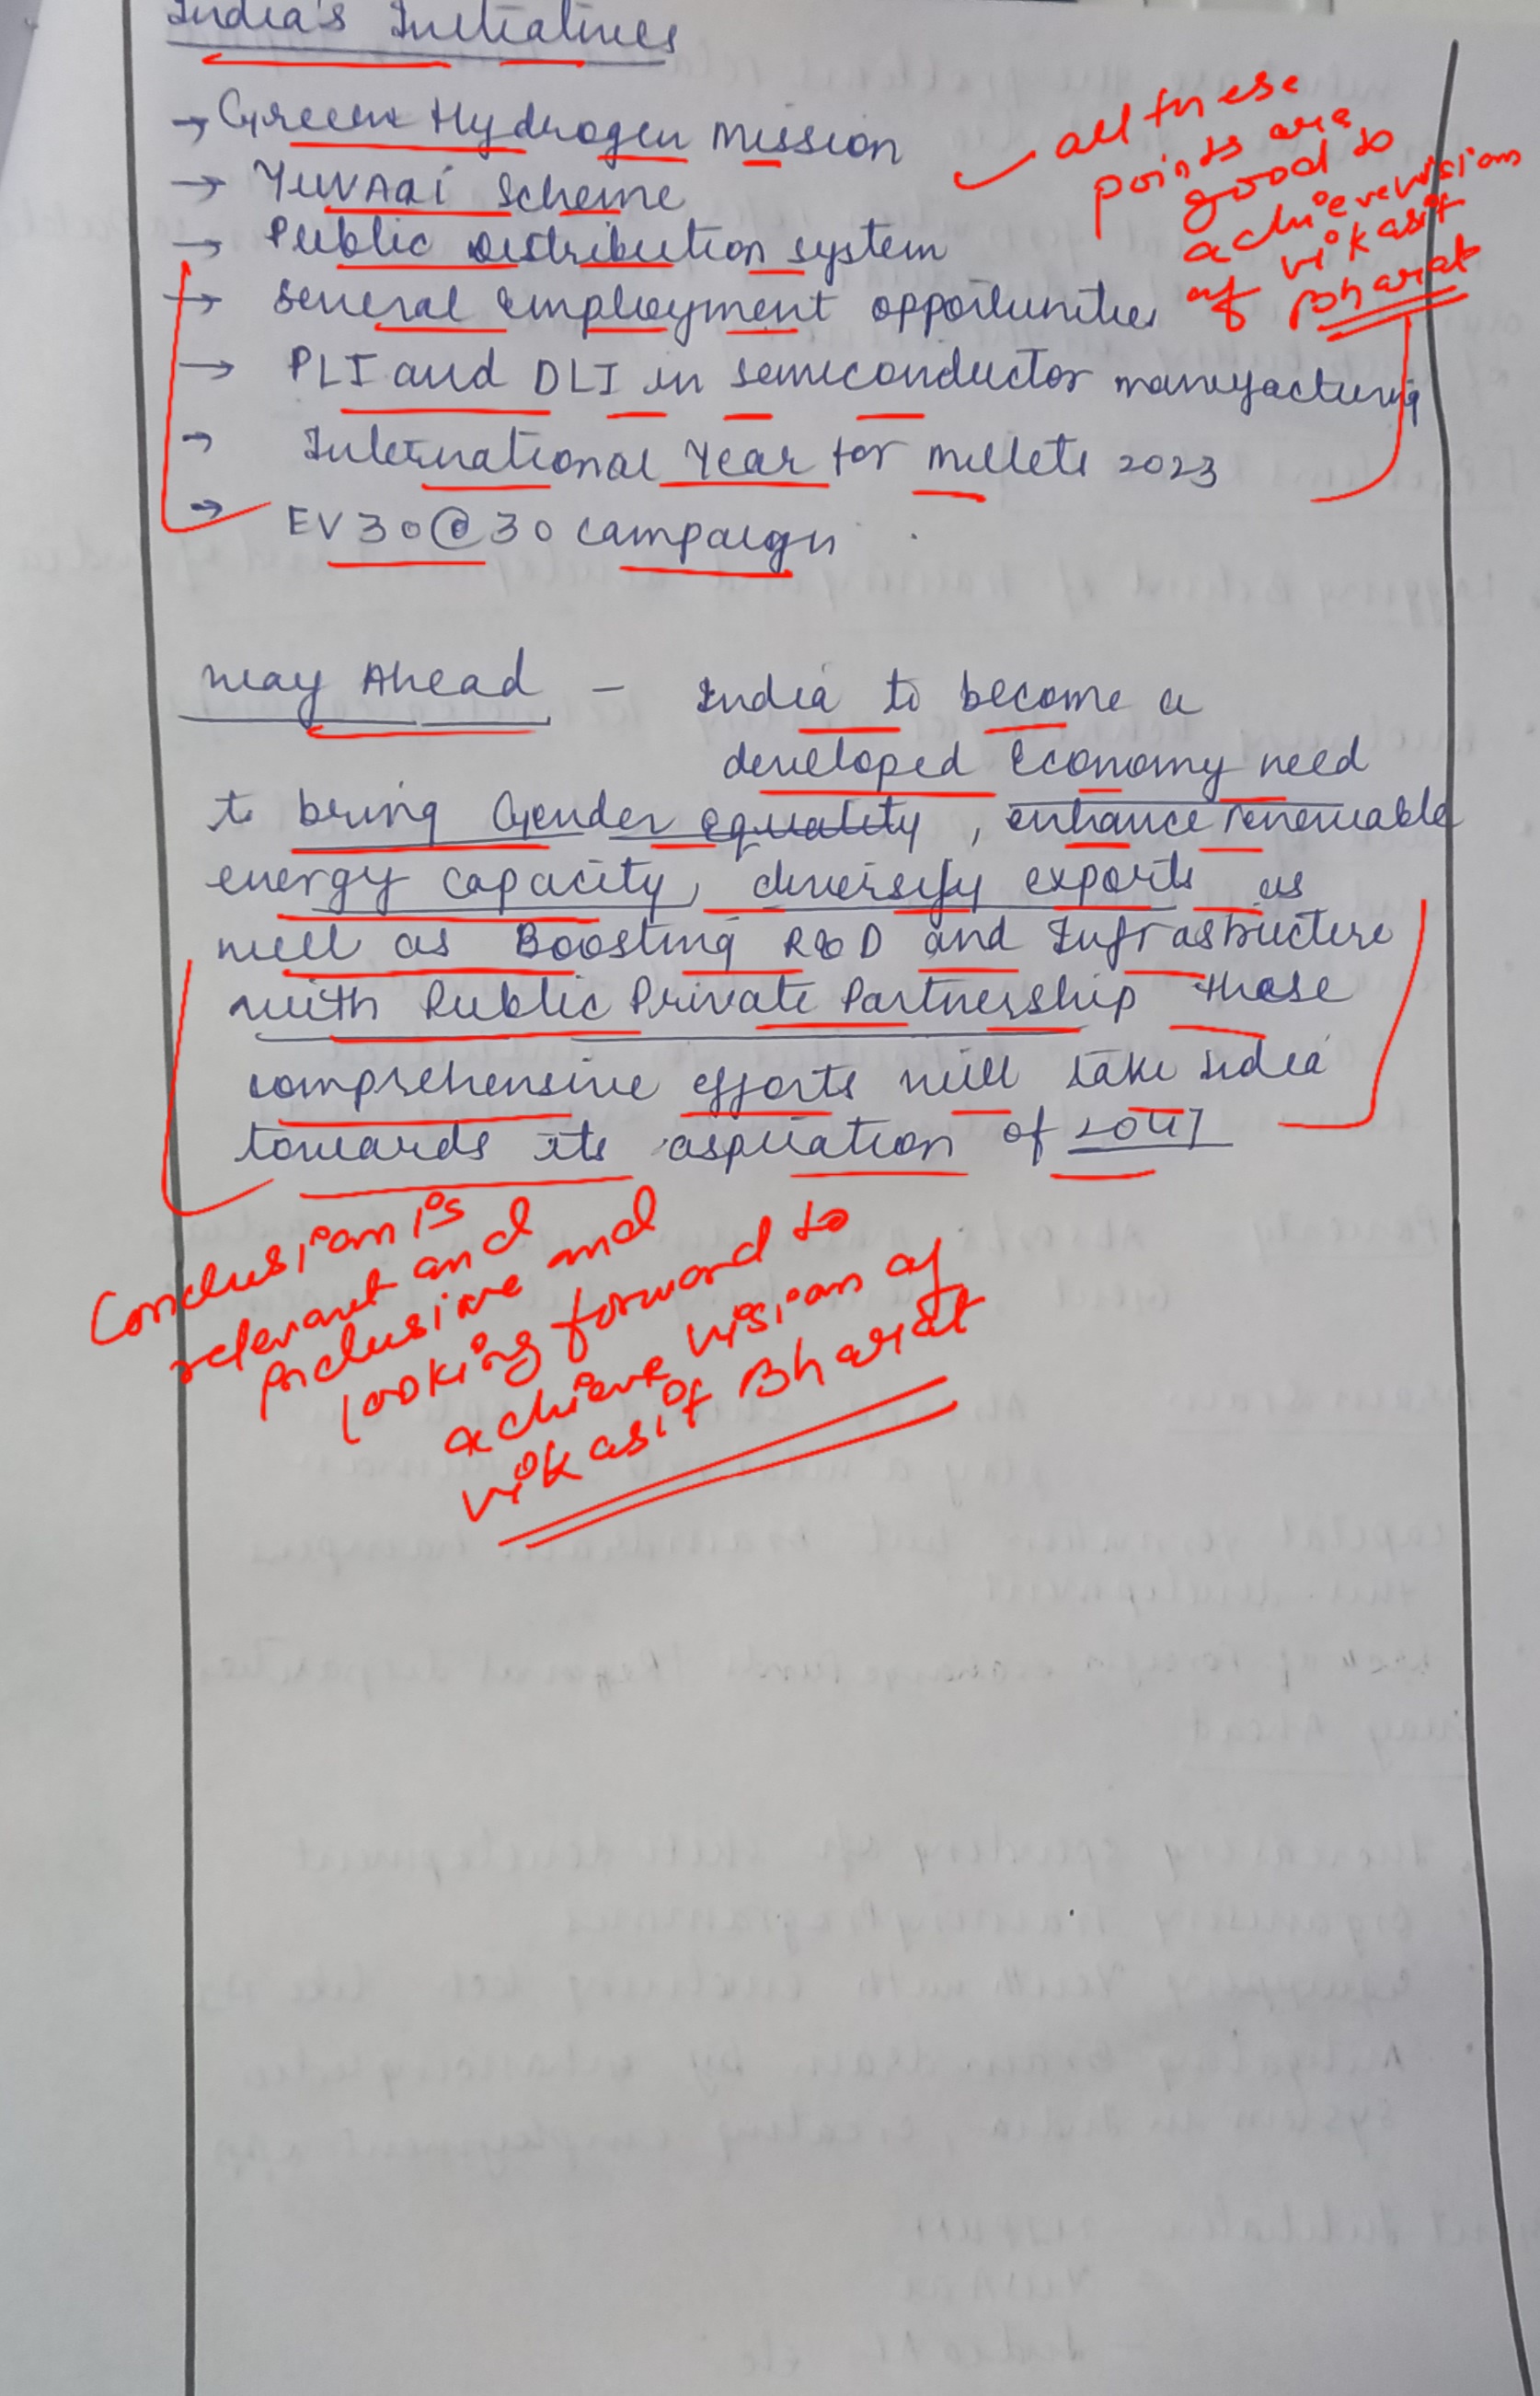 India's Initiatives
→ Green Hydrogen Mission
→ YUVAai Scheme
→ Public Distribution system
→ General Employment opportunities
→ PLI and DLI in semiconductor manufacturing
→ International Year for Millets 2023
→ EV30@30 campaign
all these
points are
good to
achieve vision
of vikasit
Bharat
Way Ahead - India to become a
developed Economy need
to bring Gender equality, enhance renewable
energy capacity, diversify exports as
well as Boosting R&D and Infrastructure
with Public Private Partnership these
comprehensive efforts will take India
towards its aspiration of 2047
Conclusion is
relevant and
inclusive and
looking forward to
achieve vision of
vikasit Bharat